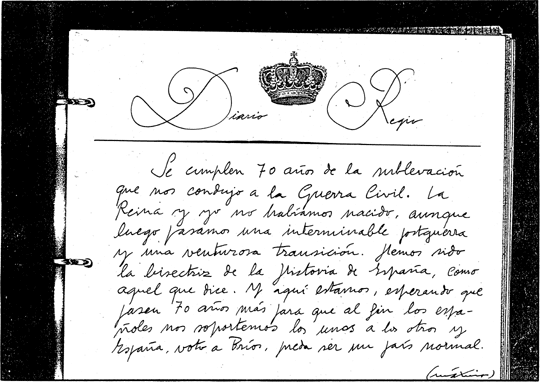 Diario Regio
Se cumplen 70 años de la sublevación
que nos condujo a la Guerra Civil. La
Reina y yo no habíamos nacido, aunque
luego pasamos una interminable postguerra
y una venturosa transición. Hemos sido
la bisectriz de la Historia de España, como
aquel que dice. Y aquí estamos, esperando que
pasen 70 años más para que al fin los espa-
ñoles nos soportemos los unos a los otros y
España, voto a Bríos, pueda ser un país normal.
(máximo)